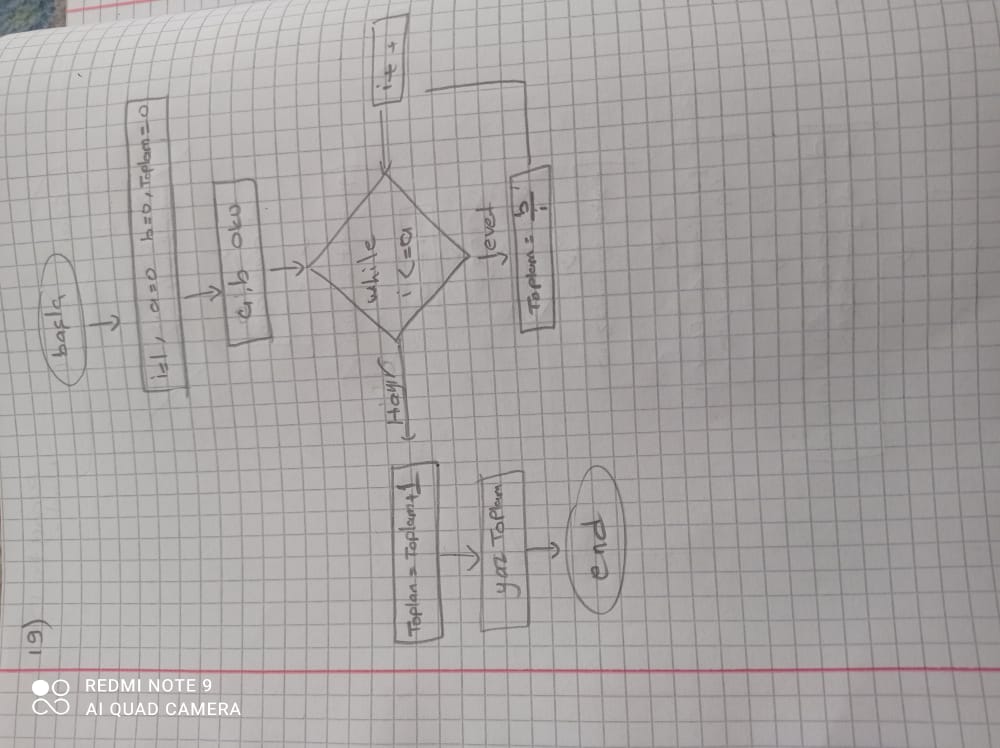 19)
başla
i=1, a=0 b=0, Toplam=0
a,b oku
while
i<=a
i++
Hayır
evet
Toplam = b/i
Toplam = Toplam+1
yaz Toplam
end
REDMI NOTE 9
AI QUAD CAMERA